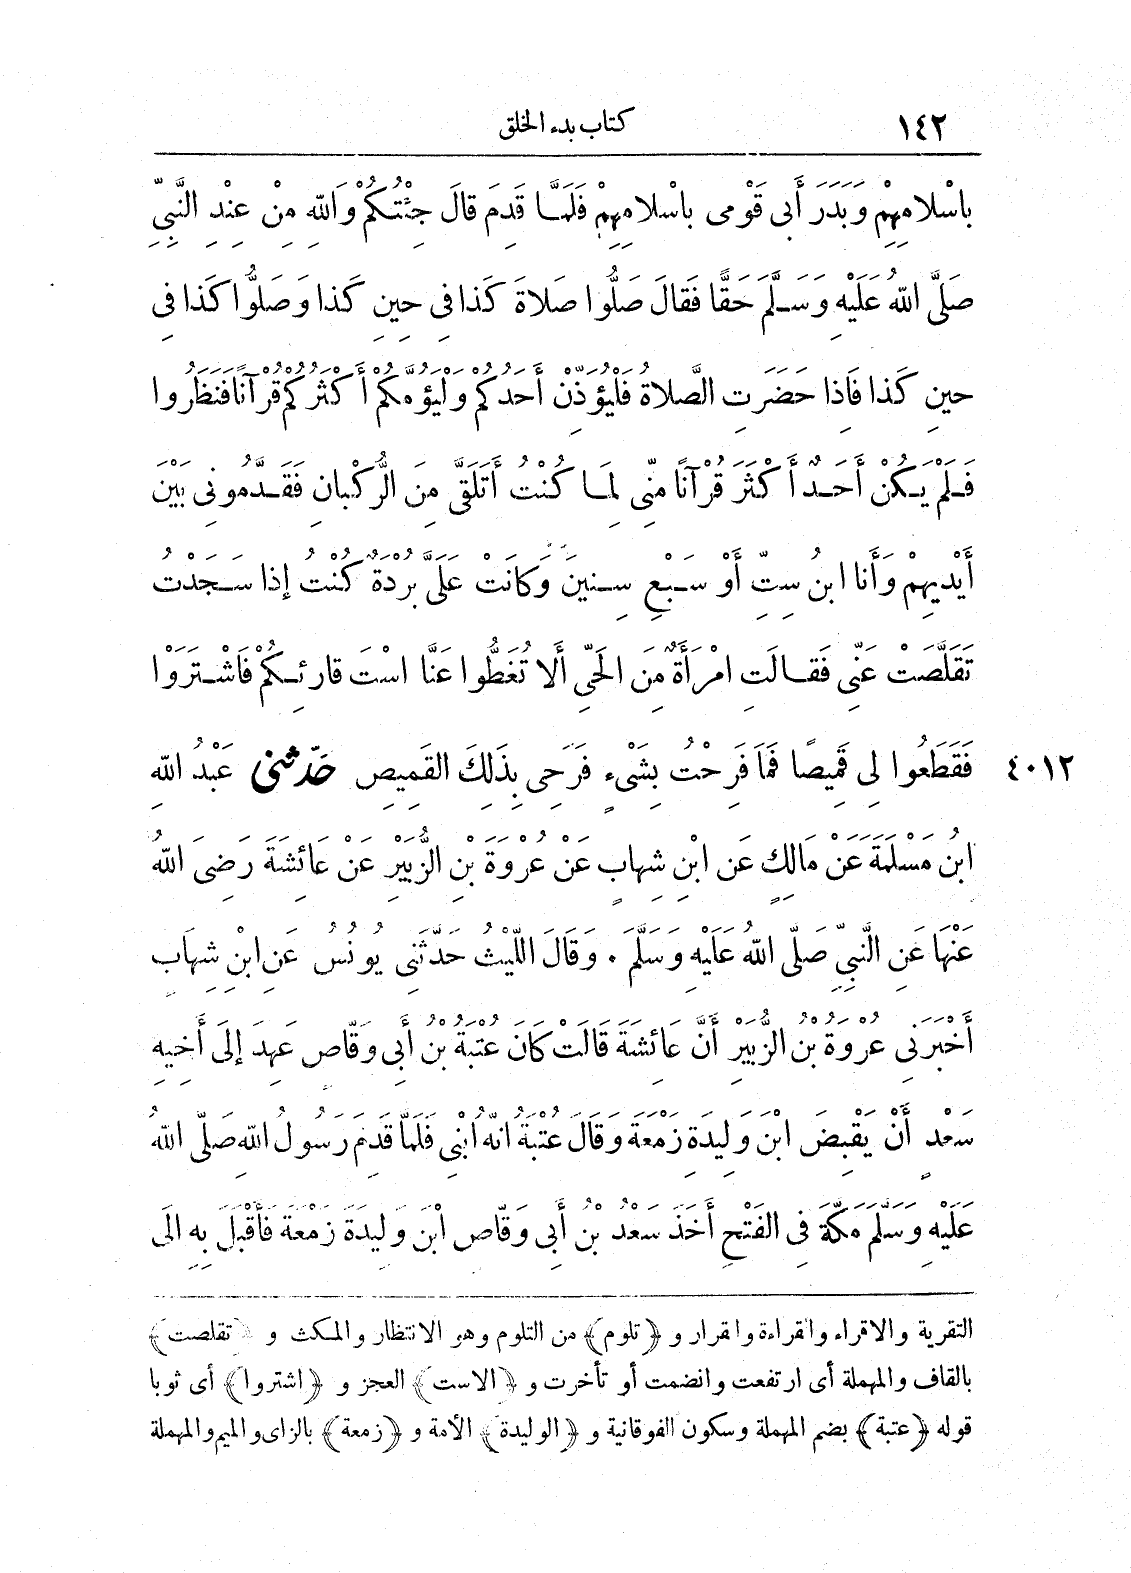 ١٤٢ كتاب بدء الخلق
بِاسْلامِهِمْ وَبَدَرَ أَبِى قَوْمِى بِاسْلامِهِمْ فَلَمَّا قَدِمَ قالَ جِئْتُكُمْ وَاللهِ مِنْ عِنْدِ النَّبِىِّ
صَلَّى اللهُ عَلَيْهِ وَسَلَّمَ حَقًّا فَقالَ صَلُّوا صَلاةَ كَذا فِى حِينِ كَذا وَصَلُّوا كَذا فِى
حِينِ كَذا فَاذا حَضَرَتِ الصَّلاةُ فَلْيُؤَذِّنْ أَحَدُكُمْ وَلْيَؤُمَّكُمْ أَكْثَرُكُمْ قُرْآنًا فَنَظَرُوا
فَلَمْ يَكُنْ أَحَدٌ أَكْثَرَ قُرْآنًا مِنِّى لِمَا كُنْتُ أَتَلَقَّى مِنَ الرُّكْبانِ فَقَدَّمُونِى بَيْنَ
أَيْدِيهِمْ وَأَنا ابنُ سِتٍّ أَوْ سَبْعِ سِنِينَ وَكانَتْ عَلَىَّ بُرْدَةٌ كُنْتُ إذا سَجَدْتُ
تَقَلَّصَتْ عَنِّى فَقالَتِ امْرَأَةٌ مِنَ الحَىِّ أَلا تُغَطُّوا عَنَّا اسْتَ قارِئِكُمْ فَاشْتَرَوْا
٤٠١٢ فَقَطَعُوا لِى قَمِيصًا فَمَا فَرِحْتُ بِشَىْءٍ فَرَحِى بِذَلِكَ القَمِيصِ حَدَّثَنِى عَبْدُ اللهِ
ابنُ مَسْلَمَةَ عَنْ مَالِكٍ عَنِ ابْنِ شِهابٍ عَنْ عُرْوَةَ بْنِ الزُّبَيْرِ عَنْ عَائِشَةَ رَضِىَ اللهُ
عَنْهَا عَنِ النَّبِىِّ صَلَّى اللهُ عَلَيْهِ وَسَلَّمَ . وَقَالَ اللَّيْثُ حَدَّثَنِى يُونُسُ عَنِ ابْنِ شِهَابٍ
أَخْبَرَنِى عُرْوَةُ بْنُ الزُّبَيْرِ أَنَّ عَائِشَةَ قَالَتْ كَانَ عُتْبَةُ بْنُ أَبِى وَقَّاصٍ عَهِدَ إِلَى أَخِيهِ
سَعْدٍ أَنْ يَقْبِضَ ابْنَ وَلِيدَةِ زَمْعَةَ وَقَالَ عُتْبَةُ انَّهُ ابْنِى فَلَمَّا قَدِمَ رَسُولُ اللهِ صَلَّى اللهُ
عَلَيْهِ وَسَلَّمَ مَكَّةَ فِى الفَتْحِ أَخَذَ سَعْدُ بْنُ أَبِى وَقَّاصٍ ابْنَ وَلِيدَةَ زَمْعَةَ فَأَقْبَلَ بِهِ الَى
التقرية والاقراء والقراءة والقرار و ﴿تلوم﴾ من التلوم وهو الانتظار والمكث و ﴿تقلصت﴾
بالقاف والمهملة أى ارتفعت وانضمت أو تأخرت و ﴿الاست﴾ العجز و ﴿اشتروا﴾ أى ثوبا
قوله ﴿عتبة﴾ بضم المهملة وسكون الفوقانية و ﴿الوليدة﴾ الأمة و ﴿زمعة﴾ بالزاى والميم والمهملة